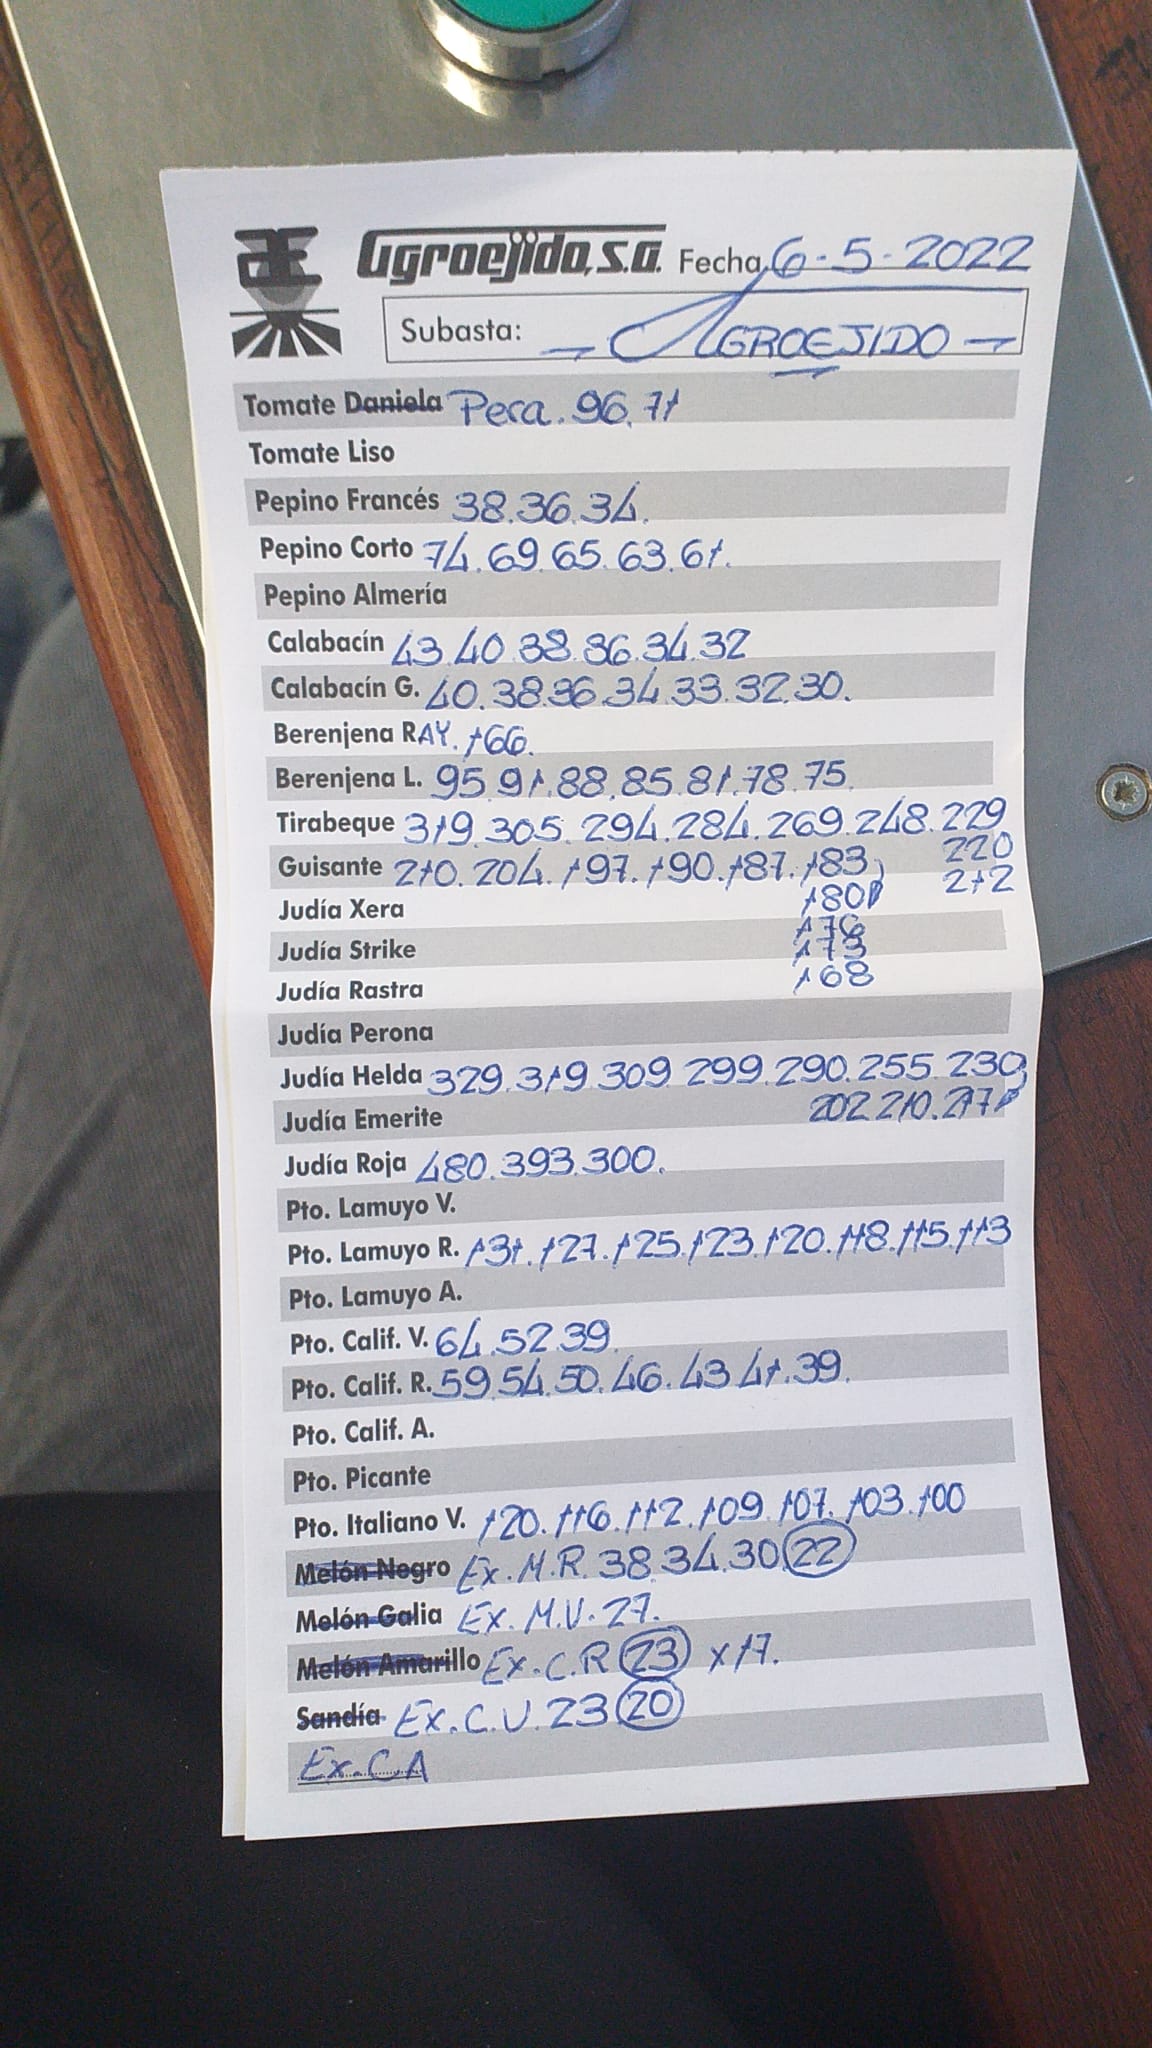 Agroejido, S.A. Fecha 6-5-2022
Subasta: - AGROEJIDO -
Tomate Daniela Pera. 96. 71
Tomate Liso
Pepino Francés 38.36.34.
Pepino Corto 74.69.65.63.61.
Pepino Almería
Calabacín 43.40.38.36.34.32
Calabacín G. 40.38.36.34.33.32.30.
Berenjena RAY. 166.
Berenjena L. 95.91.88.85.81.78.75.
Tirabeque 319.305.294.284.269.248.229
220
Guisante 210.204.197.190.187.183
212
180
Judía Xera
176
Judía Strike
173
168
Judía Rastra
Judía Perona
Judía Helda 329.319.309.299.290.255.230
Judía Emerite 202.210.217
Judía Roja 480.393.300.
Pto. Lamuyo V.
Pto. Lamuyo R. 131.127.125.123.120.118.115.113
Pto. Lamuyo A.
Pto. Calif. V. 64.52.39
Pto. Calif. R. 59.54.50.46.43.41.39.
Pto. Calif. A.
Pto. Picante
Pto. Italiano V. 120.116.112.109.107.103.100
Melón Negro Ex.M.R. 38.34.30.22
Melón Galia Ex.M.V. 27.
Melón Amarillo Ex.C.R 23 x17.
Sandía Ex.C.V. 23 20
Ex.CA